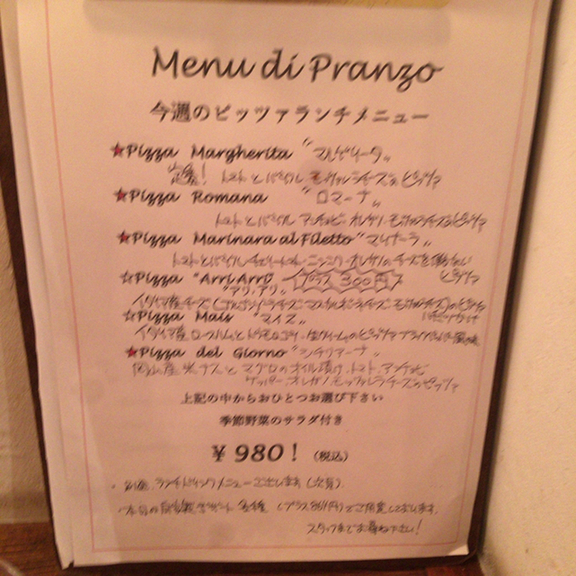 Menu di Pranzo
今週のピッツァランチメニュー
★Pizza Margherita "マルゲリータ"
定番! トマトとバジル モッツァレラチーズのピッツァ
★Pizza Romana "ロマーナ"
トマトとバジル アンチョビ オレガノ モッツァレラチーズのピッツァ
★Pizza Marinara al Filetto "マリナーラ"
トマトとバジル チェリートマト ニンニク オレガノの チーズを
ピッツァ
☆Pizza "Arri Arri" プラス 300円
"アリ,アリ"
イタリア産チーズ
☆Pizza Mais "マイス"
イタリア産ロースハムとトウモロコシ 生クリームのピッツァ
★Pizza del Giorno "シチリアーナ"
岡山産 米ナスと マグロのオイル漬け トマト アンチョビ
ケッパー オレガノ モッツァレラチーズのピッツァ
上記の中からおひとつお選び下さい
季節野菜のサラダ付き
¥ 980! (税込)
・別途 ランチドリンクメニューございます
・本日の自家製デザート 各種 (プラス 円)でご用意しております。
スタッフまでお尋ね下さい!